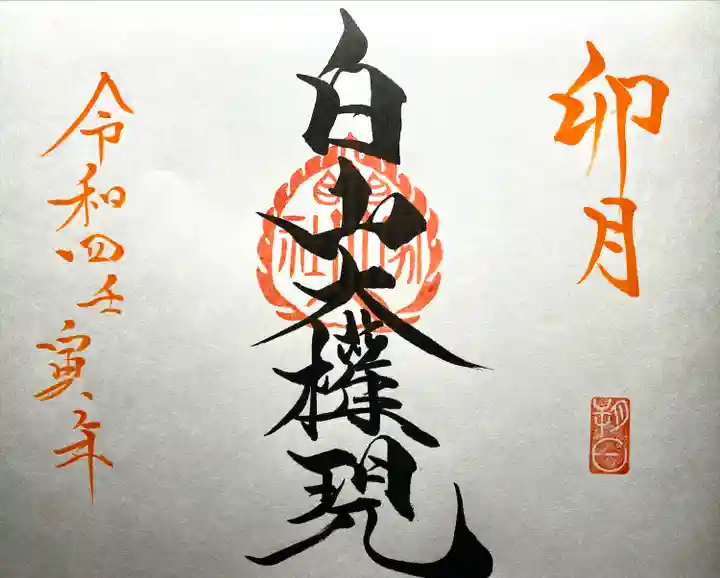 卯月
白山大権現
令和四壬寅年
朔日